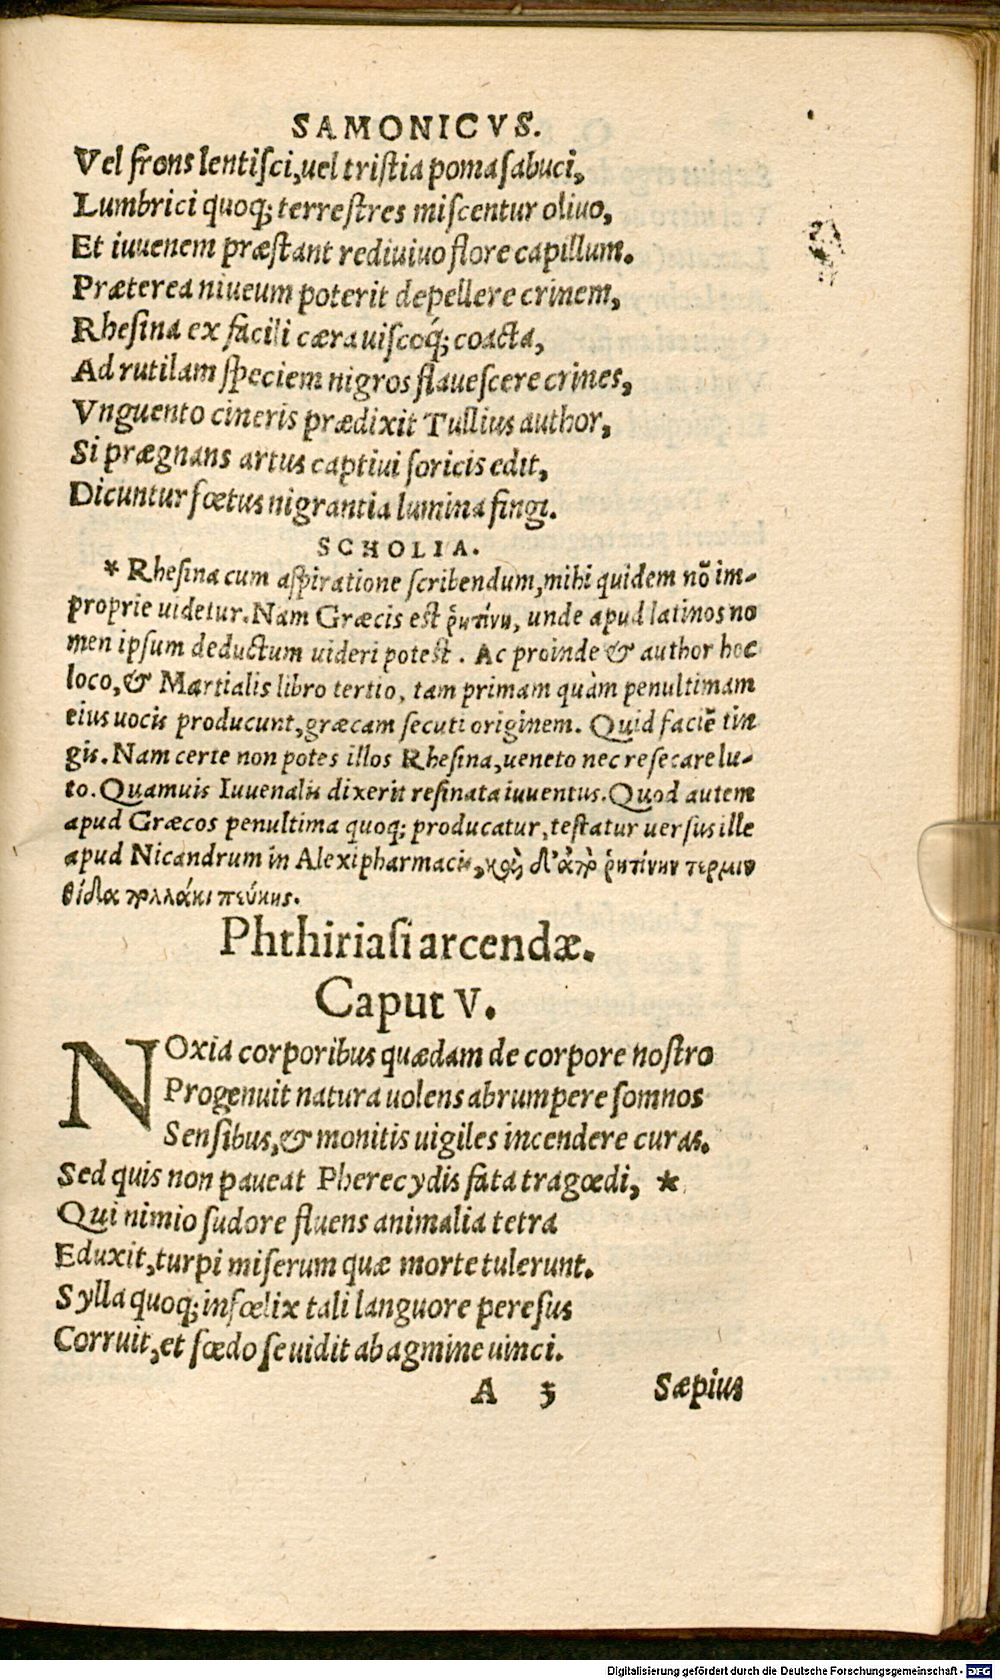 SAMONICVS.
Vel frons lentisci, uel tristia poma sabuci,
Lumbrici quoq; terrestres miscentur oliuo,
Et iuuenem præstant rediuiuo flore capillum.
Præterea niueum poterit depellere crinem,
Rhesina ex facili cæra uiscoq́; coacta,
Ad rutilam speciem nigros flauescere crines,
Vnguento cineris prædixit Tullius author,
Si prægnans artus captiui soricis edit,
Dicuntur fœtus nigrantia lumina fingi.
SCHOLIA.
* Rhesina cum aspiratione scribendum, mihi quidem nõ im-
proprie uidetur. Nam Græcis est ῥητίνη, unde apud latinos no
men ipsum deductum uideri potest. Ac proinde & author hoc
loco, & Martialis libro tertio, tam primam quàm penultimam
eius uocis producunt, græcam secuti originem. Quid faciẽ tin
gis. Nam certe non potes illos Rhesina, ueneto nec resecare lu-
to. Quamuis Iuuenalis dixerit resinata iuuentus. Quod autem
apud Græcos penultima quoq; producatur, testatur uersus ille
apud Nicandrum in Alexipharmacis, καὶ ῥητίνην τερμιν
θίδα πεύκης.
Phthiriasi arcendæ.
Caput V.
NOxia corporibus quædam de corpore nostro
Progenuit natura uolens abrumpere somnos
Sensibus, & monitis uigiles incendere curas.
Sed quis non paueat Pherecydis fata tragœdi, *
Qui nimio sudore fluens animalia tetra
Eduxit, turpi miserum quæ morte tulerunt.
Sylla quoq; infœlix tali languore peresus
Corruit, et fœdo se uidit ab agmine uinci.
A 3 Sæpius
Digitalisierung gefördert durch die Deutsche Forschungsgemeinschaft - DFG